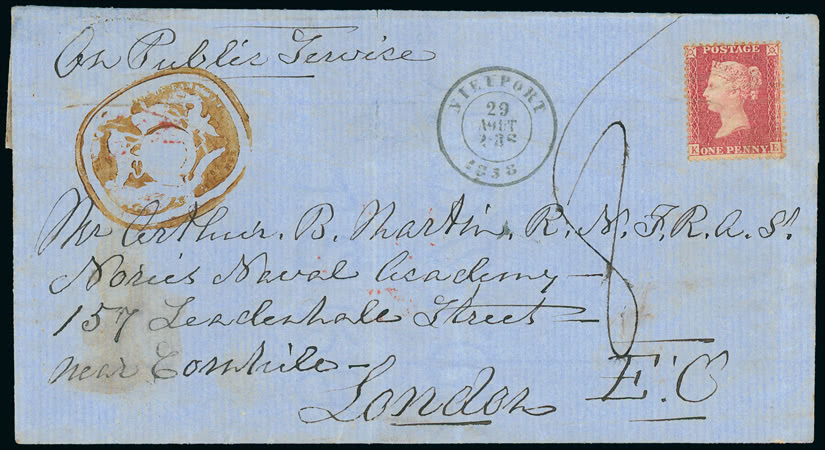 On Public Service
NIEUPORT
29
AOUT
1858
POSTAGE
K E
ONE PENNY
8
Mr Arthur. B. Martin, R. N. F. R. A. S.
Nories Naval Academy —
157 Leadenhale Street —
near Cornhile —
London E. C